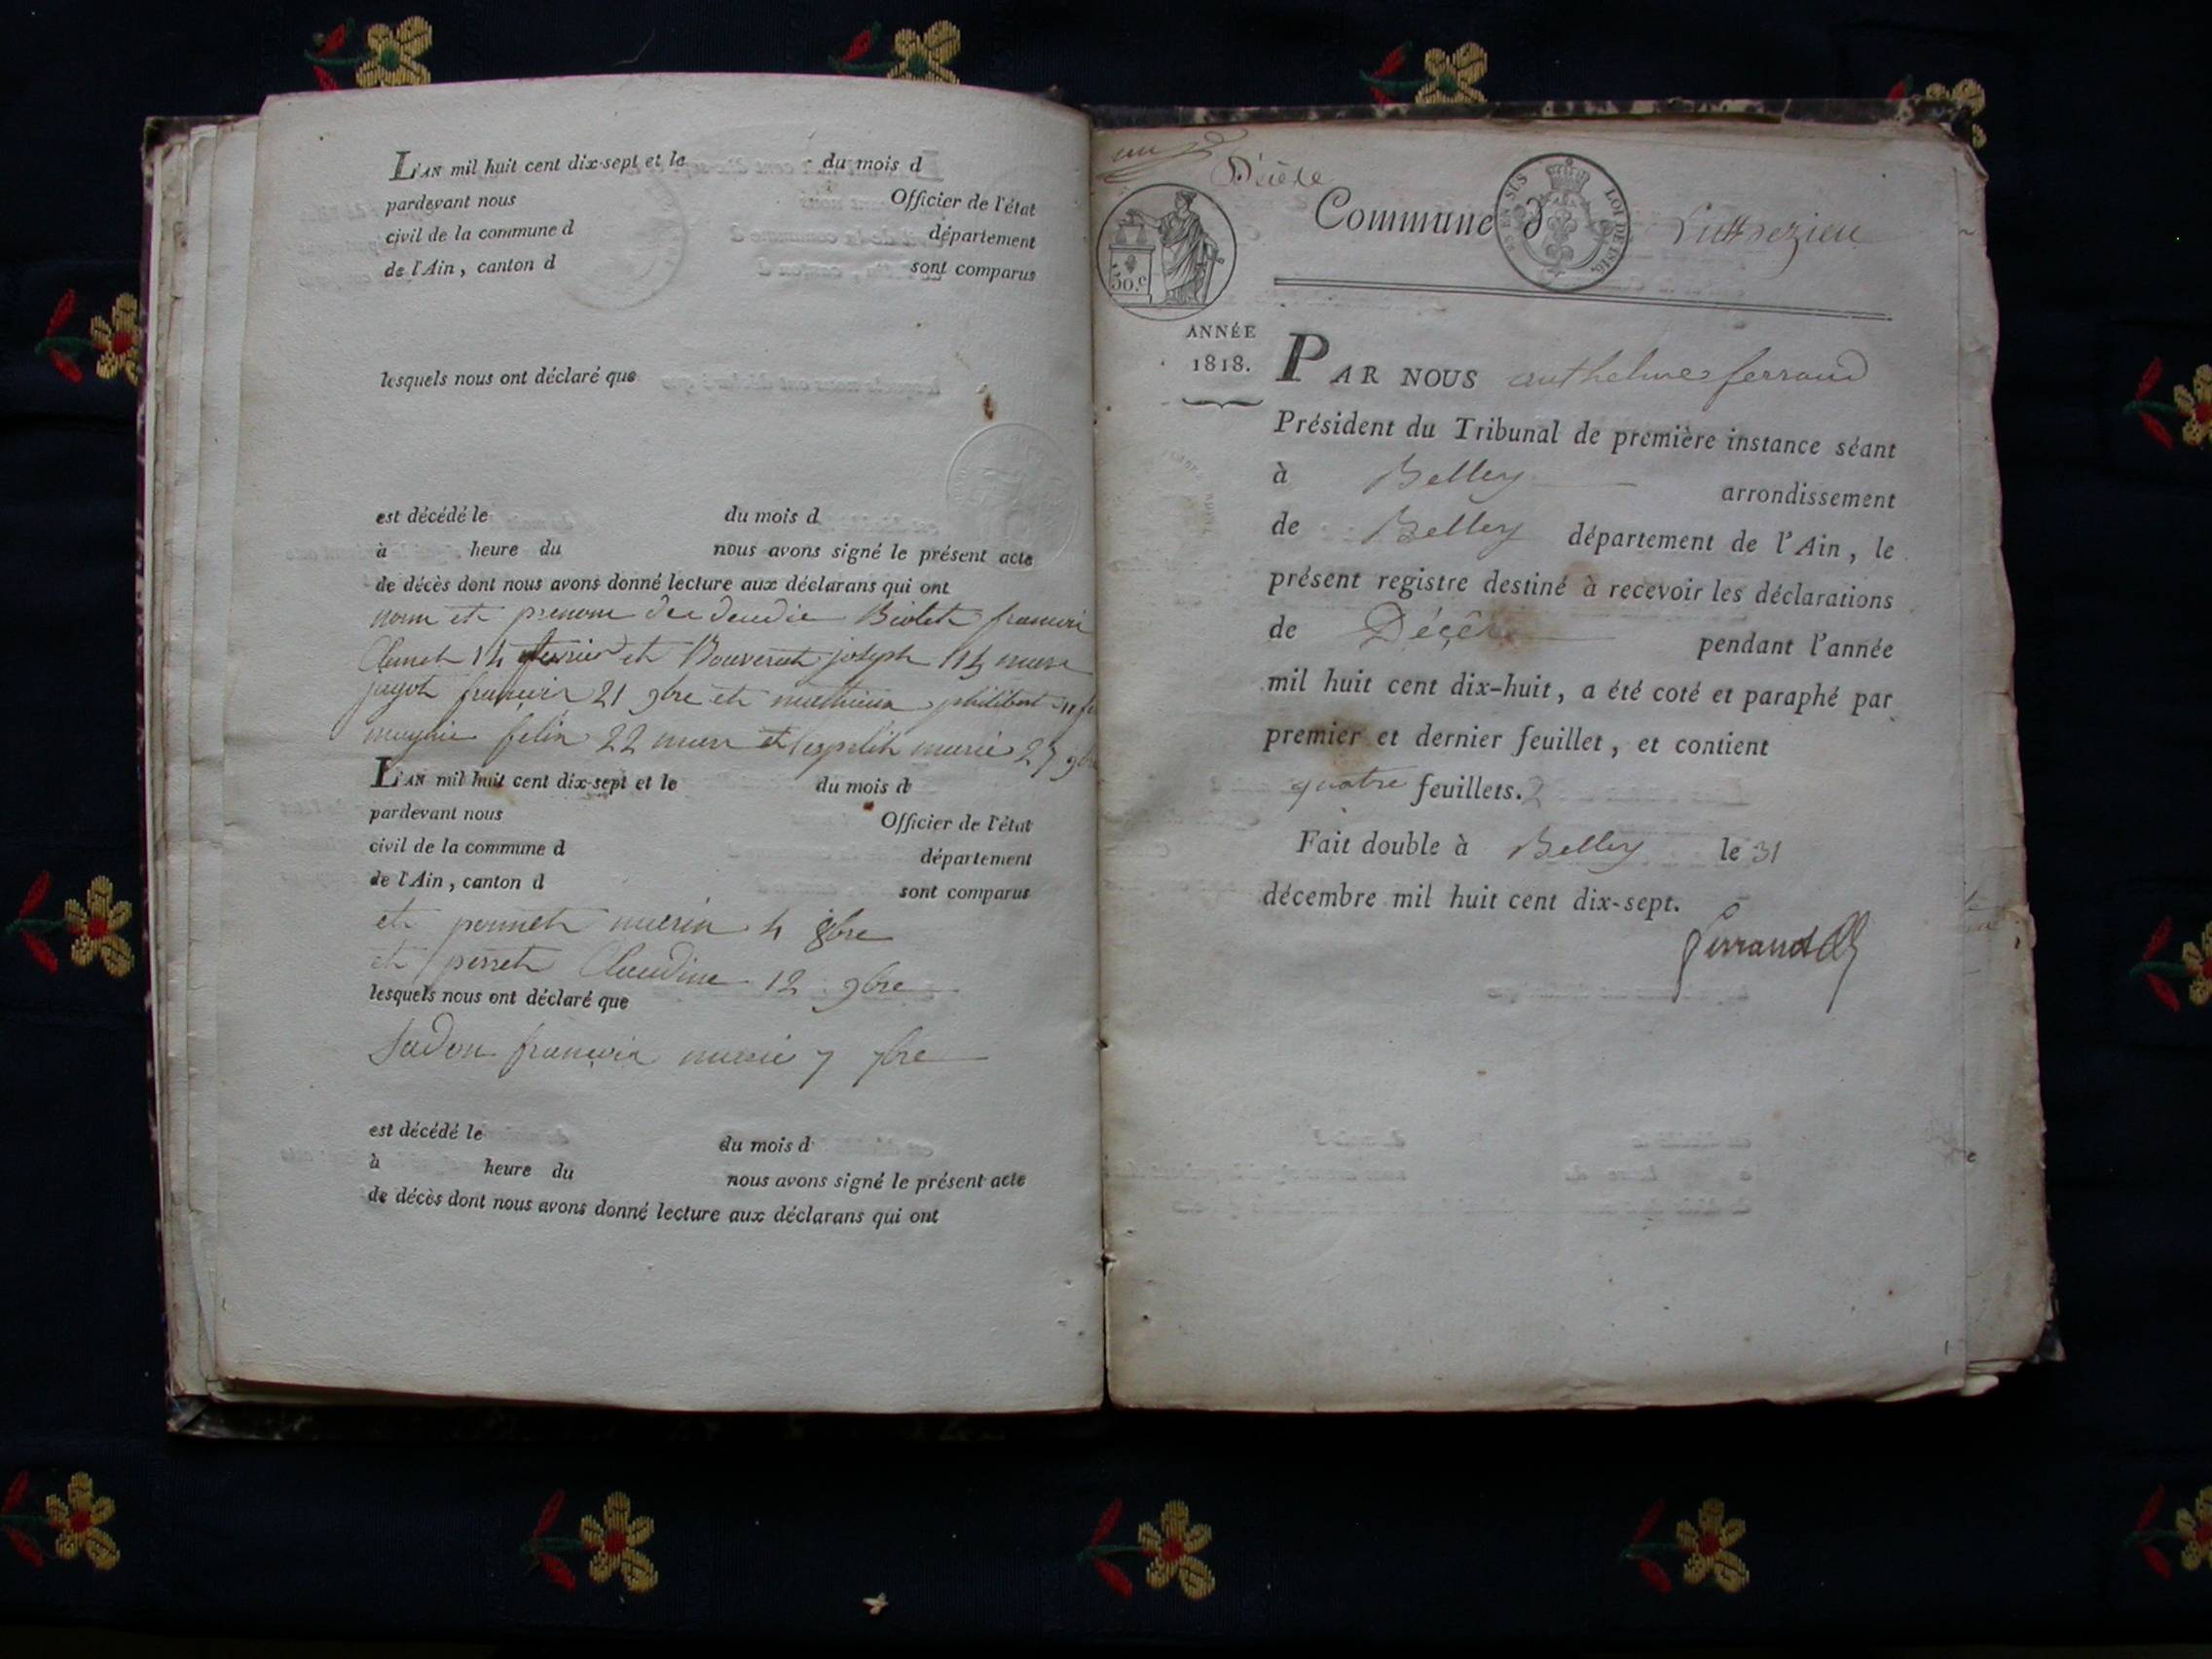 L'AN mil huit cent dix-sept et le du mois d
pardevant nous Officier de l'état
civil de la commune d département
de l'Ain, canton d sont comparus
lesquels nous ont déclaré que
est décédé le du mois d
à heure du nous avons signé le présent acte
de décès dont nous avons donné lecture aux déclarans qui ont
nom et prenom des Biolet francois
14 et Bouverat joseph 14 mars
jagot françois 21 9bre et philibert
felix 22 mars et marie 27 9bre
L'AN mil huit cent dix-sept et le du mois d
pardevant nous Officier de l'état
civil de la commune d département
de l'Ain, canton d sont comparus
et 4 8bre
et perret Claudine 12 9bre
lesquels nous ont déclaré que
françois marie 7 7bre
est décédé le du mois d
à heure du nous avons signé le présent acte
de décès dont nous avons donné lecture aux déclarans qui ont
un
Décès
50.c
EN SUS LOI DE 1816.
Commune d Luthezieu
ANNÉE
1818.
PAR NOUS anthelme ferrand
Président du Tribunal de première instance séant
à Belley arrondissement
de Belley département de l'Ain, le
présent registre destiné à recevoir les déclarations
de Décès pendant l'année
mil huit cent dix-huit, a été coté et paraphé par
premier et dernier feuillet, et contient
quatre feuillets.
Fait double à Belley le 31
décembre mil huit cent dix-sept.
Ferrand